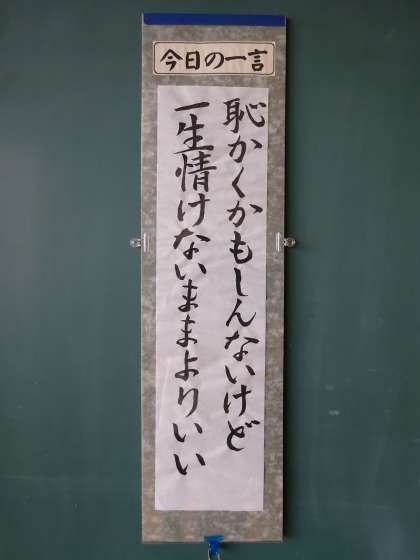 今日の一言
恥かくかもしんないけど
一生情けないままよりいい